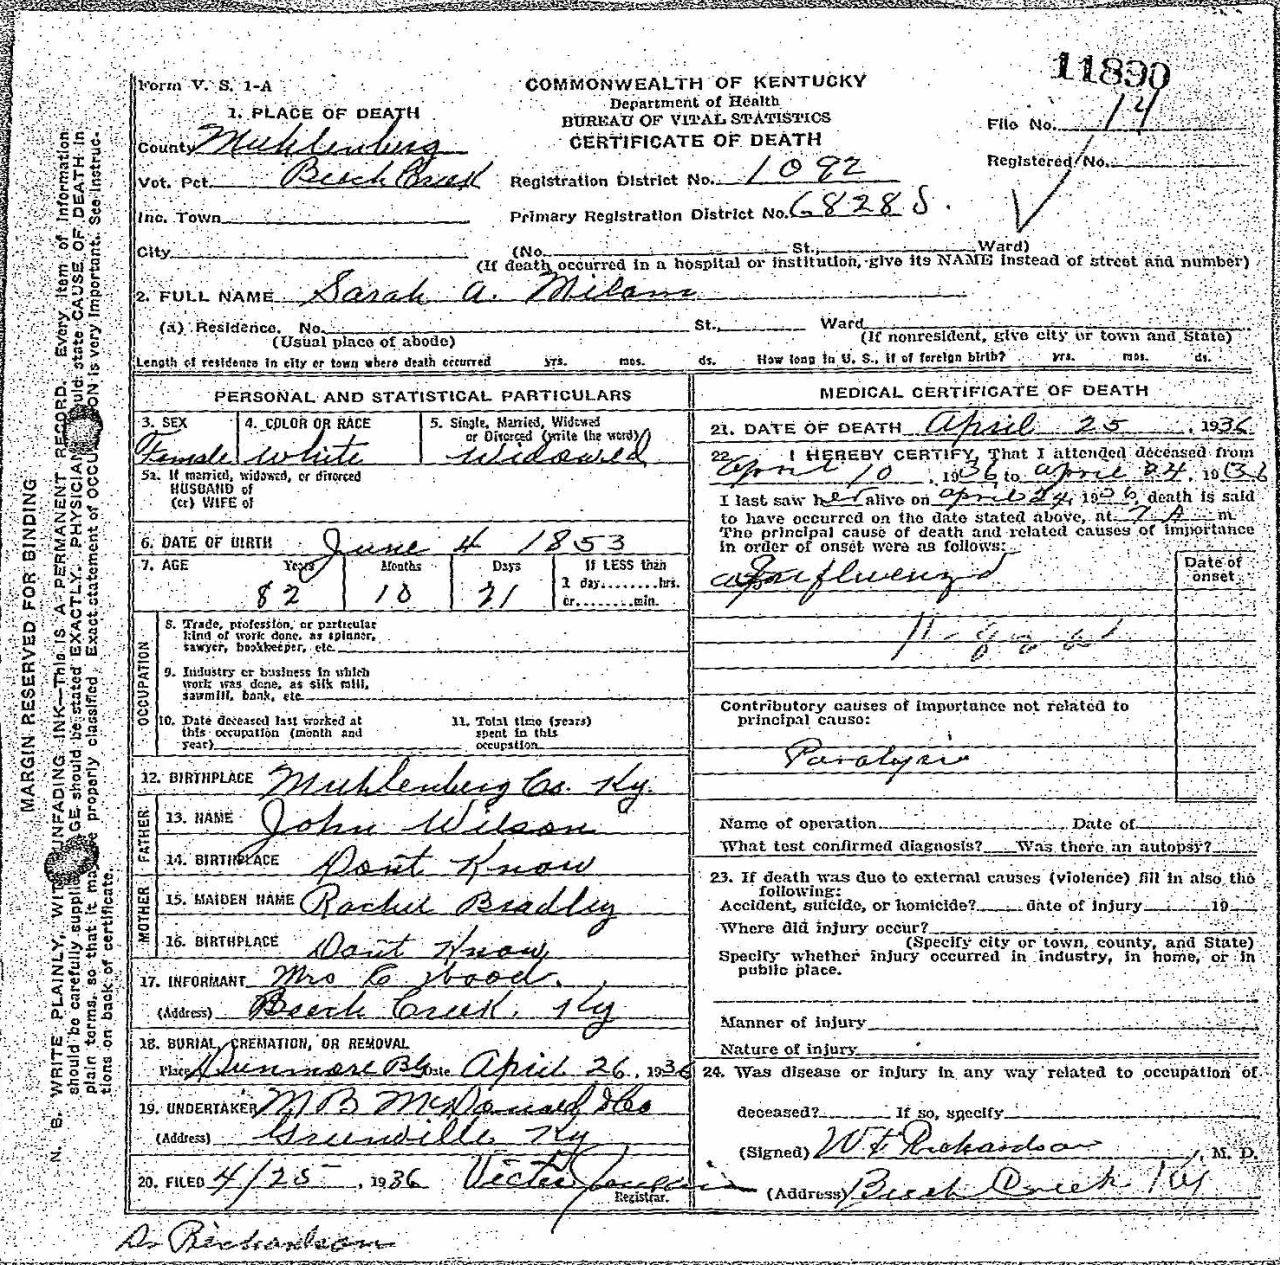 11890
Form V. S. 1-A
COMMONWEALTH OF KENTUCKY
Department of Health
BUREAU OF VITAL STATISTICS
CERTIFICATE OF DEATH
File No. 14
Registered No.
1. PLACE OF DEATH
County Muhlenberg
Vot. Pct. Beech Creek
Registration District No. 1092
Inc. Town
Primary Registration District No. 6828 S.
City (No. St., Ward)
(If death occurred in a hospital or institution, give its NAME instead of street and number)
2. FULL NAME Sarah A. Milam
(a) Residence. No. St., Ward
(Usual place of abode) (If nonresident, give city or town and State)
Length of residence in city or town where death occurred yrs. mos. ds. How long in U. S., if of foreign birth? yrs. mos. ds.
PERSONAL AND STATISTICAL PARTICULARS
3. SEX 4. COLOR OR RACE 5. Single, Married, Widowed
or Divorced (write the word)
Female White Widowed
5a. If married, widowed, or divorced
HUSBAND of
(or) WIFE of
6. DATE OF BIRTH June 4 1853
7. AGE Years Months Days If LESS than
1 day, hrs.
82 10 21 or min.
OCCUPATION
8. Trade, profession, or particular
kind of work done, as spinner,
sawyer, bookkeeper, etc.
9. Industry or business in which
work was done, as silk mill,
sawmill, bank, etc.
10. Date deceased last worked at 11. Total time (years)
this occupation (month and spent in this
year) occupation
12. BIRTHPLACE Muhlenberg Co. Ky.
FATHER
13. NAME John Wilson
14. BIRTHPLACE Dont Know
MOTHER
15. MAIDEN NAME Rachel Bradley
16. BIRTHPLACE Dont Know
17. INFORMANT Mrs C Wood.
(Address) Beech Creek, Ky
18. BURIAL, CREMATION, OR REMOVAL
Place Dunmore Date April 26, 1936
19. UNDERTAKER M B McDonald & Co
(Address) Greenville Ky
20. FILED 4/25, 1936 Victor
Registrar.
MEDICAL CERTIFICATE OF DEATH
21. DATE OF DEATH April 25, 1936
22. I HEREBY CERTIFY, That I attended deceased from
April 10, 1936, to April 24, 1936
I last saw her alive on April 24, 1936, death is said
to have occurred on the date stated above, at 7 A m.
The principal cause of death and related causes of importance
in order of onset were as follows:
Date of
onset
Influenza
Contributory causes of importance not related to
principal cause:
Paralysis
Name of operation Date of
What test confirmed diagnosis? Was there an autopsy?
23. If death was due to external causes (violence) fill in also the
following:
Accident, suicide, or homicide? date of injury 19
Where did injury occur?
(Specify city or town, county, and State)
Specify whether injury occurred in industry, in home, or in
public place.
Manner of injury
Nature of injury
24. Was disease or injury in any way related to occupation of
deceased? If so, specify
(Signed) W F Richardson, M. D.
(Address) Beech Creek Ky
Dr Richardson
MARGIN RESERVED FOR BINDING
N. B. WRITE PLAINLY, UNFADING INK—THIS IS A PERMANENT RECORD. Every item of information
should be carefully AGE should be stated EXACTLY. PHYSICIAN state CAUSE OF DEATH in
plain terms, so that it properly classified. Exact statement of is very important. See instruc-
tions on back of certificate.